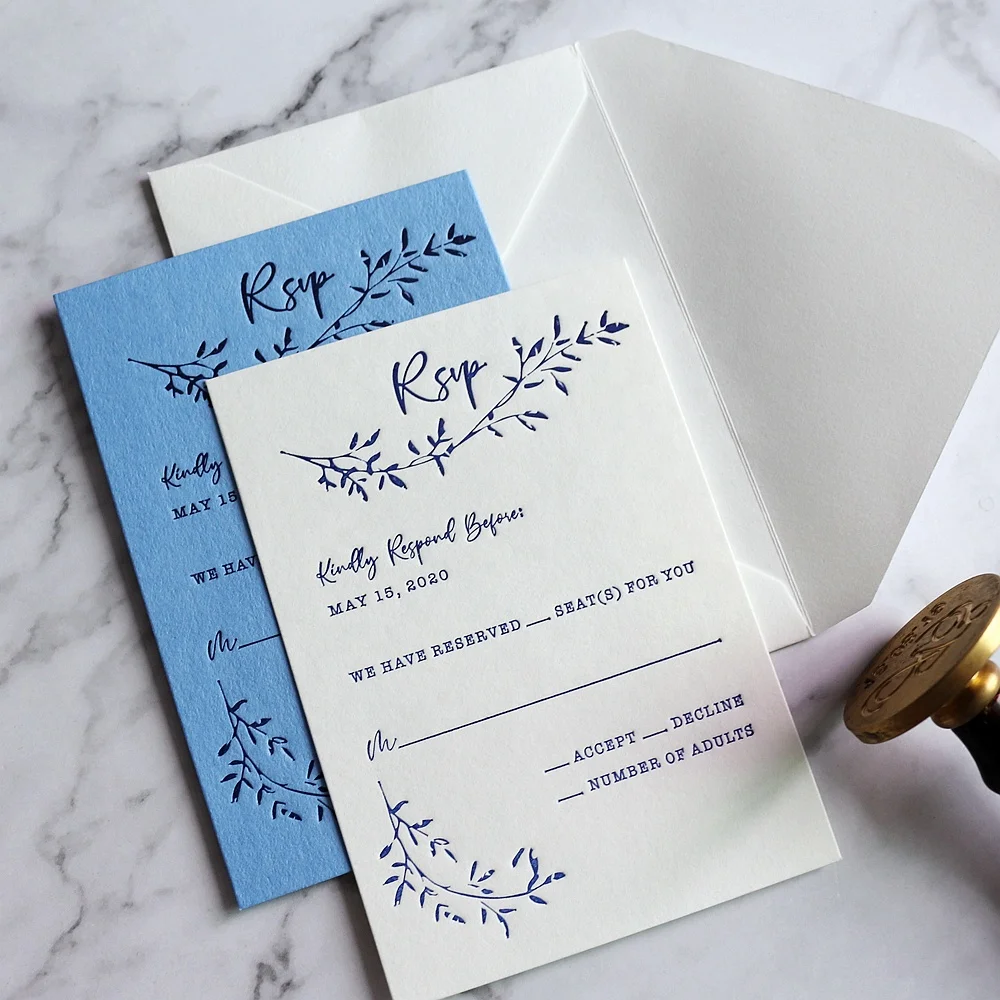 Rsvp
Kindly
MAY 15
WE HAV
M
Rsvp
Kindly Respond Before:
MAY 15, 2020
WE HAVE RESERVED __ SEAT(S) FOR YOU
M
__ ACCEPT __ DECLINE
__ NUMBER OF ADULTS